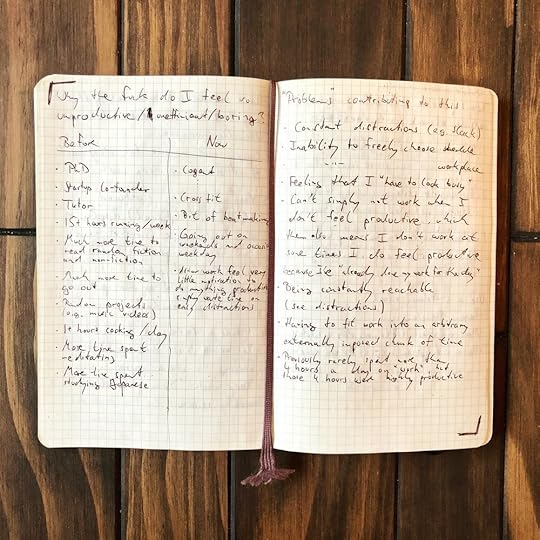 Why the fuck do I feel so
unproductive/inefficient/boring?
Before
Now
· PhD
· Startup co-founder
· Tutor
· 15+ hours running/week
· Much more time to
read random fiction
and non-fiction
· Much more time to
go out
· Random projects
(e.g. music videos)
· 1+ hours cooking/day
· More time spent
meditating
· More time spent
studying Japanese
· Cogent
· Crossfit
· Bit of beatmaking
· Going out on
weekends and
weekday
· After work feel very
little inspiration to
do anything productive
simply waste time on
easy distractions
"Problems" contributing to this:
· Constant distractions (e.g. Slack)
· Inability to freely choose schedule
-"- workplace
· Feeling that I "have to look busy"
· Can't simply not work when I
don't feel productive, which
then also means I don't work at
some times I do feel productive
because I've "already done my work for the day"
· Being constantly reachable
(see distractions)
· Having to fit work into an arbitrary
externally imposed chunk of time
· Previously rarely spent more than
4 hours a day on "work" but
those 4 hours were highly productive